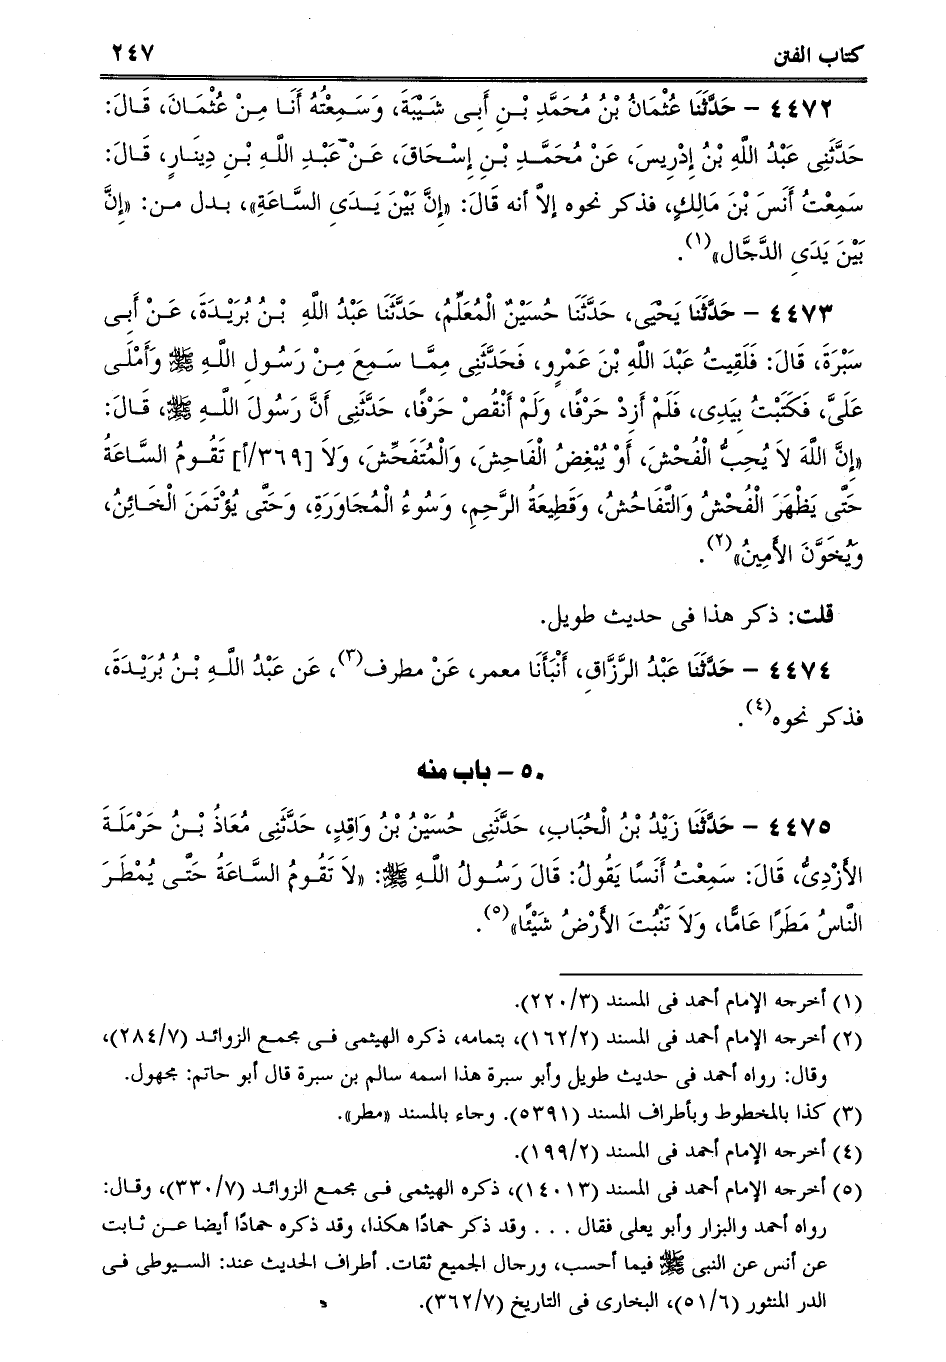 كتاب الفتن ٢٤٧
٤٤٧٢ – حَدَّثَنَا عُثْمَانُ بْنُ مُحَمَّدِ بْنِ أَبِى شَيْبَةَ، وَسَمِعْتُهُ أَنَا مِنْ عُثْمَانَ، قَالَ:
حَدَّثَنِى عَبْدُ اللَّهِ بْنُ إِدْرِيسَ، عَنْ مُحَمَّدِ بْنِ إِسْحَاقَ، عَنْ عَبْدِ اللَّهِ بْنِ دِينَارٍ، قَالَ:
سَمِعْتُ أَنَسَ بْنَ مَالِكٍ، فذكر نحوه إلاَّ أنه قَالَ: «إِنَّ بَيْنَ يَدَى السَّاعَةِ»، بدل من: «إِنَّ
بَيْنَ يَدَىِ الدَّجَّال»(١).
٤٤٧٣ – حَدَّثَنَا يَحْيَى، حَدَّثَنَا حُسَيْنٌ الْمُعَلِّمُ، حَدَّثَنَا عَبْدُ اللَّهِ بْنُ بُرَيْدَةَ، عَنْ أَبِى
سَبْرَةَ، قَالَ: فَلَقِيتُ عَبْدَ اللَّهِ بْنَ عَمْرٍو، فَحَدَّثَنِى مِمَّا سَمِعَ مِنْ رَسُولِ اللَّهِ ﷺ وَأَمْلَى
عَلَىَّ، فَكَتَبْتُ بِيَدِى، فَلَمْ أَزِدْ حَرْفًا، وَلَمْ أَنْقُصْ حَرْفًا، حَدَّثَنِى أَنَّ رَسُولَ اللَّهِ ﷺ، قَالَ:
«إِنَّ اللَّهَ لاَ يُحِبُّ الْفُحْشَ، أَوْ يُبْغِضُ الْفَاحِشَ، وَالْمُتَفَحِّشَ، وَلاَ [٣٦٩/أ] تَقُومُ السَّاعَةُ
حَتَّى يَظْهَرَ الْفُحْشُ وَالتَّفَاحُشُ، وَقَطِيعَةُ الرَّحِمِ، وَسُوءُ الْمُجَاوَرَةِ، وَحَتَّى يُؤْتَمَنَ الْخَائِنُ،
وَيُخَوَّنَ الأَمِينُ»(٢).
قلت: ذكر هذا فى حديث طويل.
٤٤٧٤ – حَدَّثَنَا عَبْدُ الرَّزَّاقِ، أَنْبَأَنَا معمر، عَنْ مطرف(٣)، عَن عَبْدُ اللَّهِ بْنُ بُرَيْدَةَ،
فذكر نحوه(٤).
٥٠ – باب منه
٤٤٧٥ – حَدَّثَنَا زَيْدُ بْنُ الْحُبَابِ، حَدَّثَنِى حُسَيْنُ بْنُ وَاقِدٍ، حَدَّثَنِى مُعَاذُ بْنُ حَرْمَلَةَ
الأَزْدِىُّ، قَالَ: سَمِعْتُ أَنَسًا يَقُولُ: قَالَ رَسُولُ اللَّهِ ﷺ: «لاَ تَقُومُ السَّاعَةُ حَتَّى يُمْطَرَ
النَّاسُ مَطَرًا عَامًّا، وَلاَ تَنْبُتَ الأَرْضُ شَيْئًا»(٥).
(١) أخرجه الإمام أحمد فى المسند (٢٢٠/٣).
(٢) أخرجه الإمام أحمد فى المسند (١٦٢/٢)، بتمامه، ذكره الهيثمى فى مجمع الزوائد (٢٨٤/٧)،
وقال: رواه أحمد فى حديث طويل وأبو سبرة هذا اسمه سالم بن سبرة قال أبو حاتم: مجهول.
(٣) كذا بالمخطوط وبأطراف المسند (٥٣٩١). وجاء بالمسند «مطر».
(٤) أخرجه الإمام أحمد فى المسند (١٩٩/٢).
(٥) أخرجه الإمام أحمد فى المسند (١٤٠١٣)، ذكره الهيثمى فى مجمع الزوائد (٣٣٠/٧)، وقال:
رواه أحمد والبزار وأبو يعلى فقال . . . وقد ذكر حمادًا هكذا، وقد ذكره حمادًا أيضا عن ثابت
عن أنس عن النبى ﷺ فيما أحسب، ورجال الجميع ثقات. أطراف الحديث عند: السيوطى فى
الدر المنثور (٥١/٦)، البخارى فى التاريخ (٣٦٢/٧).